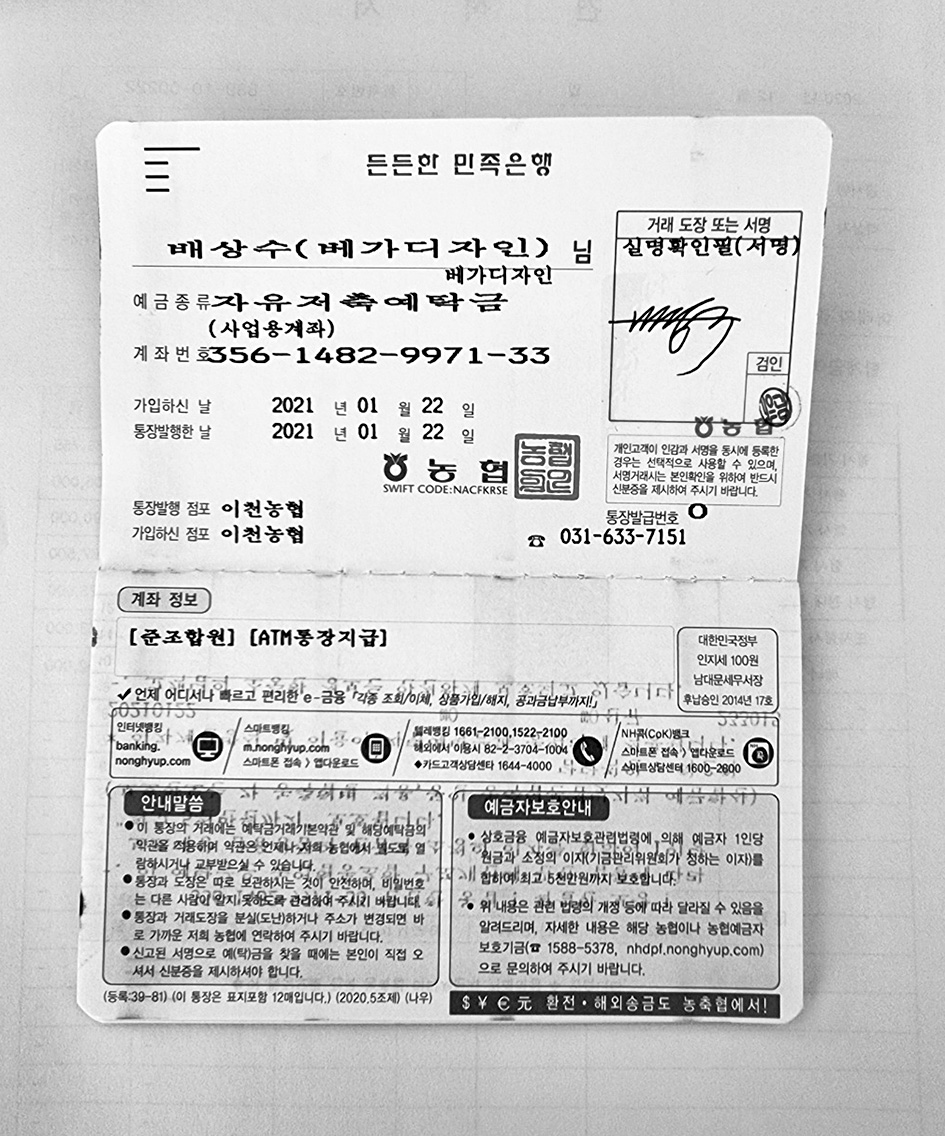 든든한 민족은행
배상수(베가디자인) 님
베가디자인
예금종류 자유저축예탁금
(사업용계좌)
계좌번호 356-1482-9971-33
가입하신 날 2021 년 01 월 22 일
통장발행한 날 2021 년 01 월 22 일
농협
SWIFT CODE:NACFKRSE
통장발행 점포 이천농협
가입하신 점포 이천농협
거래 도장 또는 서명
실명확인필(서명)
검인
농협
개인고객이 인감과 서명을 동시에 등록한
경우는 선택적으로 사용할 수 있으며,
서명거래시는 본인확인을 위하여 반드시
신분증을 제시하여 주시기 바랍니다.
통장발급번호 0
☎ 031-633-7151
계좌 정보
[준조합원] [ATM통장지급]
대한민국정부
인지세 100원
남대문세무서장
후납승인 2014년 17호
✓언제 어디서나 빠르고 편리한 e-금융 「각종 조회/이체, 상품가입/해지, 공과금납부까지!」
인터넷뱅킹
banking.
nonghyup.com
스마트뱅킹
m.nonghyup.com
스마트폰 접속 〉 앱다운로드
텔레뱅킹 1661-2100,1522-2100
해외에서 이용시 82-2-3704-1004
◆카드고객상담센타 1644-4000
NH콕(CoK)뱅크
스마트폰 접속 〉 앱다운로드
스마트상담센터 1600-2800
안내말씀
● 이 통장의 거래에는 예탁금거래기본약관 및 해당예탁금의
약관을 적용하며 약관은 언제나 저희 농협에서 별도로 열
람하시거나 교부받으실 수 있습니다.
● 통장과 도장은 따로 보관하시는 것이 안전하며, 비밀번호
는 다른 사람이 알지 못하도록 관리하여 주시기 바랍니다.
● 통장과 거래도장을 분실(도난)하거나 주소가 변경되면 바
로 가까운 저희 농협에 연락하여 주시기 바랍니다.
● 신고된 서명으로 예(탁)금을 찾을 때에는 본인이 직접 오
셔서 신분증을 제시하셔야 합니다.
(등록:39-81) (이 통장은 표지포함 12매입니다.) (2020.5조제) (나우)
예금자보호안내
● 상호금융 예금자보호관련법령에 의해 예금자 1인당
원금과 소정의 이자(기금관리위원회가 정하는 이자)를
합하여 최고 5천만원까지 보호합니다.
● 위 내용은 관련 법령의 개정 등에 따라 달라질 수 있음을
알려드리며, 자세한 내용은 해당 농협이나 농협예금자
보호기금(☎ 1588-5378, nhdpf.nonghyup.com)
으로 문의하여 주시기 바랍니다.
$ ¥ € 元 환전·해외송금도 농축협에서!